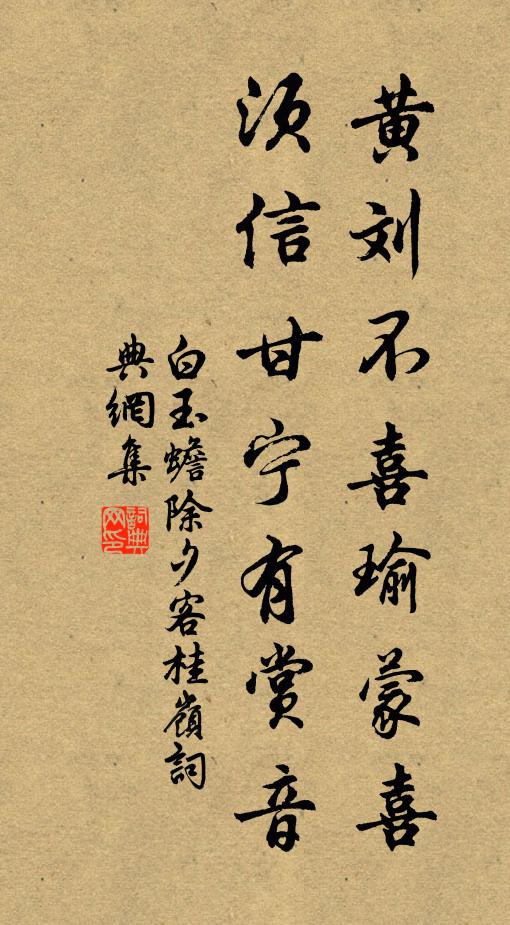 黄刘不喜瑜蒙喜
须信甘宁有赏音
白玉蟾除夕客桂嶺詞
典網集
詞典網印